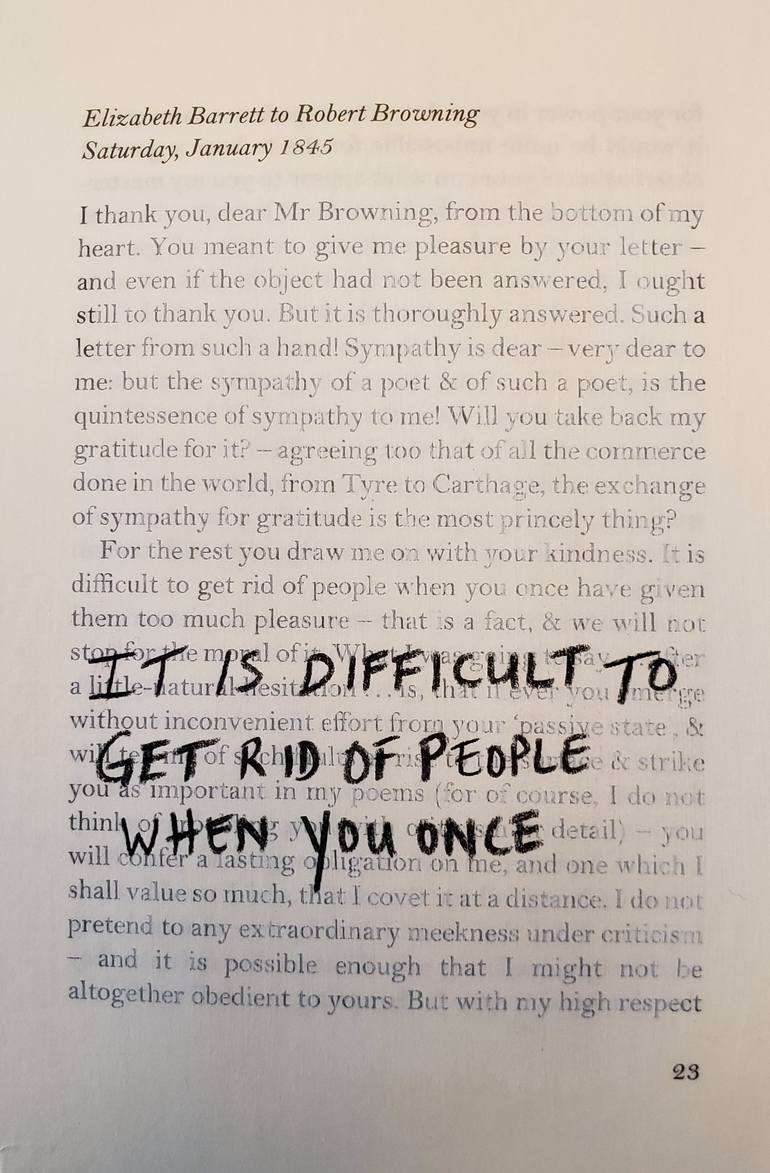 Elizabeth Barrett to Robert Browning
Saturday, January 1845
I thank you, dear Mr Browning, from the bottom of my
heart. You meant to give me pleasure by your letter –
and even if the object had not been answered, I ought
still to thank you. But it is thoroughly answered. Such a
letter from such a hand! Sympathy is dear – very dear to
me: but the sympathy of a poet & of such a poet, is the
quintessence of sympathy to me! Will you take back my
gratitude for it? – agreeing too that of all the commerce
done in the world, from Tyre to Carthage, the exchange
of sympathy for gratitude is the most princely thing?
For the rest you draw me on with your kindness. It is
difficult to get rid of people when you once have given
them too much pleasure – that is a fact, & we will not
stop for the moral of it. What I was going to say after
IT IS DIFFICULT TO
a little-natural hesitation ... is, that if ever you emerge
without inconvenient effort from your 'passive state', &
GET RID OF PEOPLE
will of such & strike
you as important in my poems (for of course, I do not
think of detail) – you
WHEN YOU ONCE
will confer a lasting obligation on me, and one which I
shall value so much, that I covet it at a distance. I do not
pretend to any extraordinary meekness under criticism
– and it is possible enough that I might not be
altogether obedient to yours. But with my high respect
23